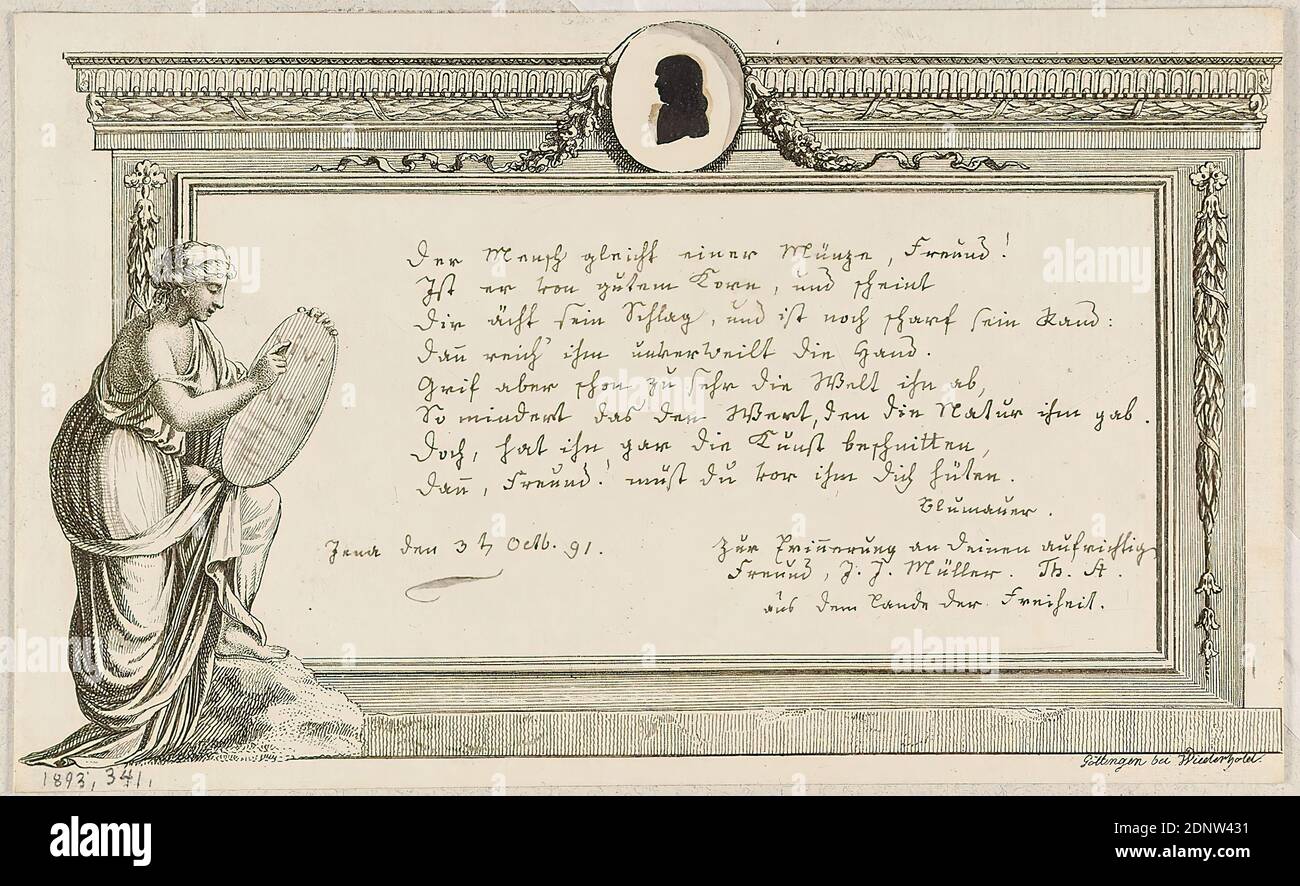 Der Mensch gleicht einer Münze, Freund!
Ist er von gutem Korn, und scheint
Dir ächt sein Schlag, und ist noch scharf sein Rand:
Dañ reich' ihm unverweilt die Hand.
Grif aber schon zu sehr die Welt ihn ab,
So mindert das den Wert, den die Natur ihm gab.
Doch, hat ihn gar die Kunst beschnitten,
Dañ, Freund! must du vor ihm dich hüten.
Blumauer.
Jena den 3t Octb. 91.
Zur Eriñerung an deinen aufrichtig
Freund, J. J. Müller. Th. A.
aus dem Lande der Freiheit.
Göttingen bei Wiederhold.
1893, 341.
alamy
Image ID: 2DNW431
www.alamy.com